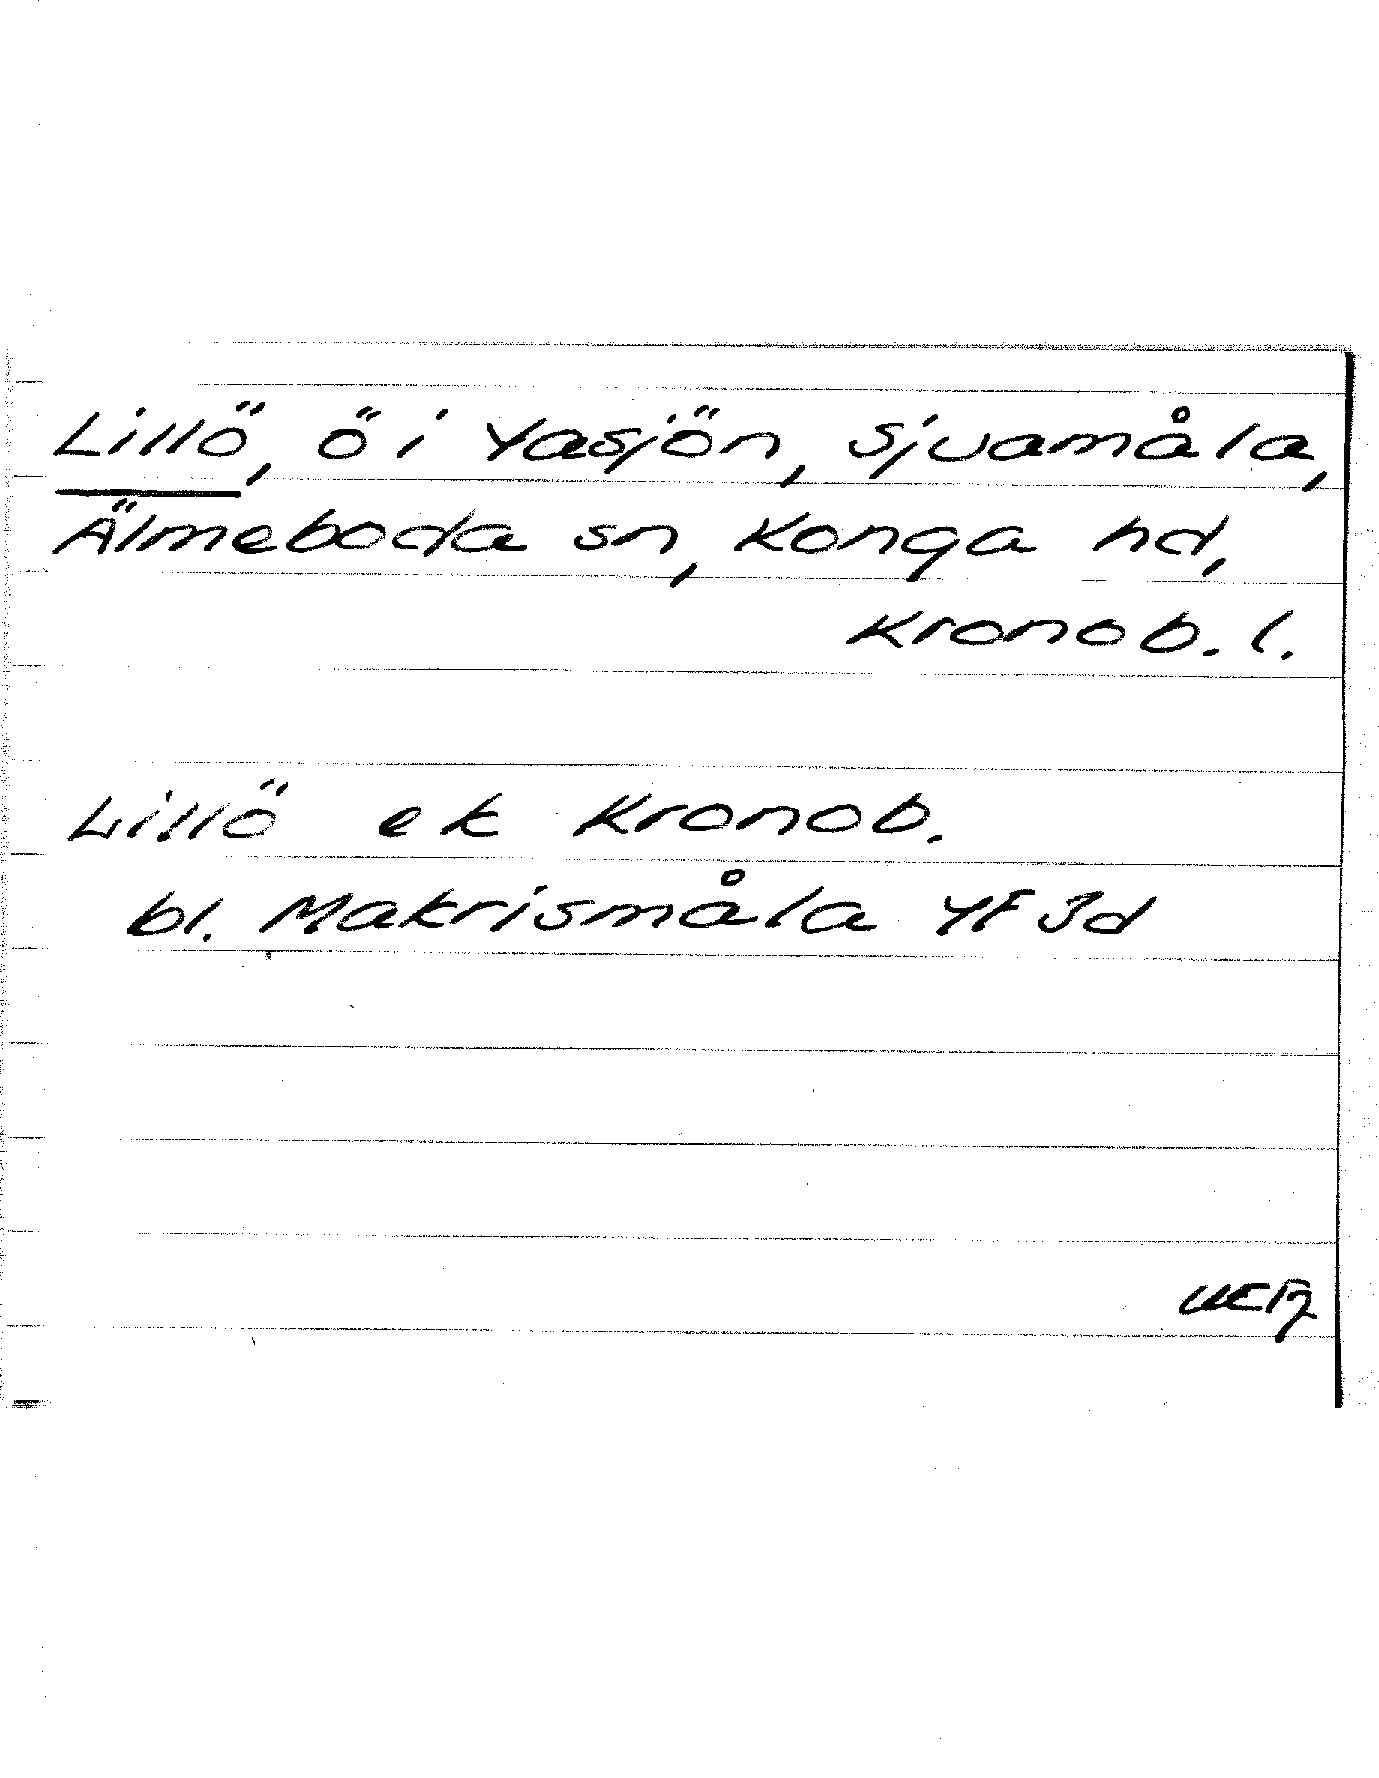 Lillö, ö i Yasjön, Sjuamåla,
Älmeboda sn, Konga hd,
Kronob. l.
Lillö ek Kronob.
bl. Makrismåla 4F 3d